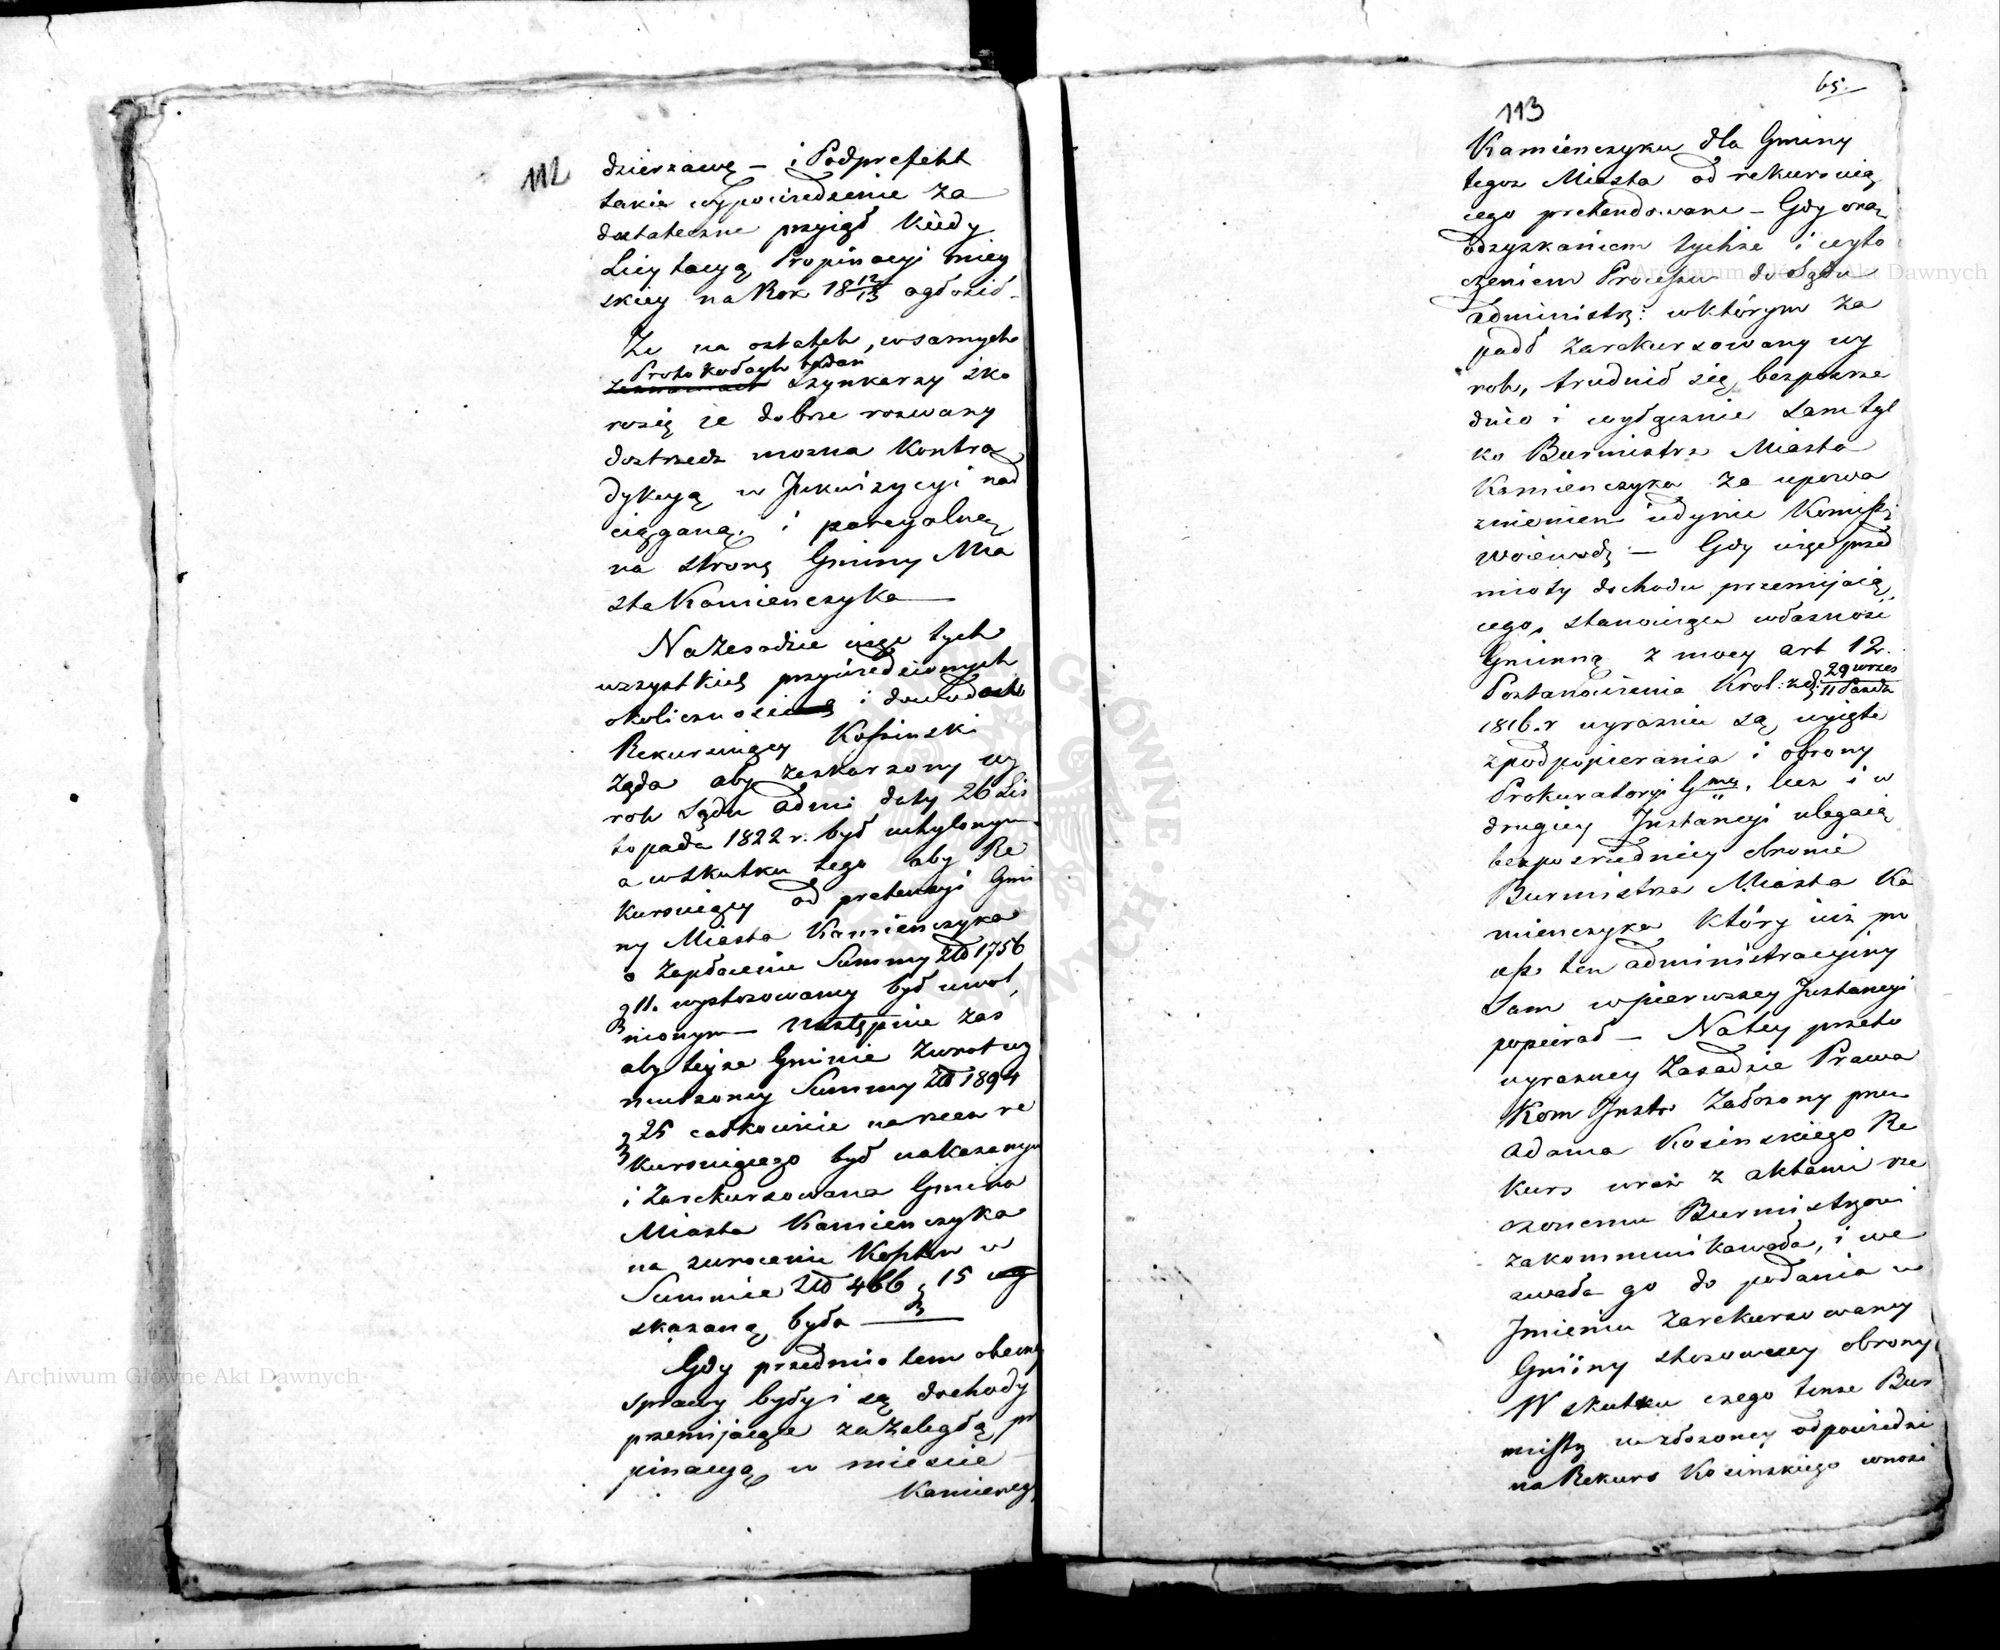 112
dzierzawę – i Podprefekt
takie wypowiedzenie za
dostateczne przyiął kiedy
Licytacyą Propinacyi miey
skiey na Rok 18 12/13 ogłosił –
Ze na ostatek, w samych
Protokołach badań
Szynkarzy sko
rosię ie dobrze rozwazy
dostrzedz mozna Kontra
dykcyą w Inkwizycyi nad
ciąganą, i parcyalną
na stronę Gminy Mia
sta Kamienczyka
Na zasadzie więc tych
wszystkich przywiedzionych
okoliczności i dowodach
Rekuruiący Kossinski
Ząda aby zaskarzony wy
rok Sądu admi daty 26 Lis
topada 1822 r. był uchylonym
a w skutku tego aby Re
kuruiący od pretensyi Gmi
ny Miasta Kamienczyka
o Zapłacenie Summy Złł 1756
g 11. wystosowaney był uwol,
nionym – Następnie zas
aby teyze Gminie Zwrot wy
muszoney Summy Złł 1894
g 25 całkowicie na rzecz re
kuruiącego był nakazanym
i Zarekursowana Gmina
Miasta Kamienczyka
na zwrocenie Kosztow w
Summie Złł 466 g 15
skazaną była
Gdy przedmiotem obecney
sprawy były i są dochody
przemijaiące za Zaległą pr
pinacyą w miescie
Kamieńcz
113
65.
Kamienczyku dla Gminy
tegoz Miasta od rekuruią
cego pretendowane – Gdy oraz
odzyskaniem tychze i wyto
czeniem Processu do Sądu
administr: w którym Za
padł zarekursowany wy
rok, trudnił się bezposrze
dnio i wyłącznie sam tyl
ko Burmistrz Miasta
Kamienczyka za upowa
znieniem iedynie Kommissyi
Woiewodz: – Gdy więc przed
mioty dochodu przemijaią,
cego, stanowiące własnosć
Gminną z mocy art 12.
Postanowienia Krol: z d: 29 wrzes / 11 Pazdz
1816. r wyraznie są wyięte
z pod popierania i obrony
Prokuratoryi Gney, lecz i w
drugiey Instancyi ulegaią
bezposredniey obronie
Burmistrza Miasta Ka
mienczyka który iuz pro
cess ten administracyiny
Sam w pierwszey Instancyi
popierał – Na tey przeto
wyrazney Zasadzie Prawa
Kom Instr Założony przez
Adama Kosinskiego Re
kurs wraz z aktami rze
czonemu Burmistrzowi
zakommunikowała, i we
zwała go do podania w
Imieniu Zarekursowaney
Gminy stosowney obrony
W skutku czego tenze Bur
mistrz w złozoney odpowiedzi
na Rekurs Kosinskiego wnosi
Archiwum Główne Akt Dawnych
Archiwum Główne Akt Dawnych